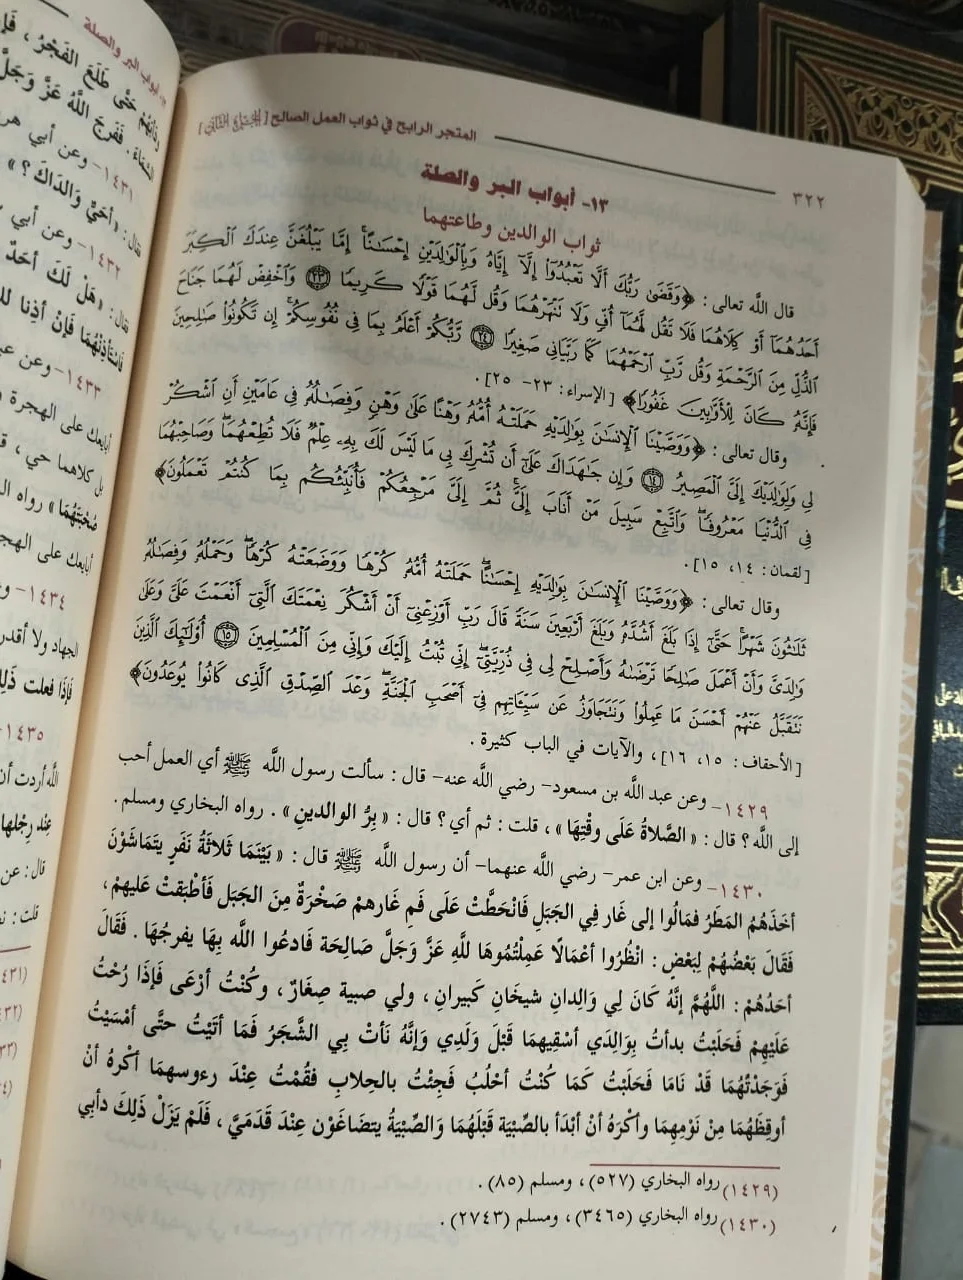 ٣٢٢
المتجر الرابح في ثواب العمل الصالح [الجزء الثاني]
١٣- أبواب البر والصلة
ثواب الوالدين وطاعتهما
قال الله تعالى : ﴿وَقَضَىٰ رَبُّكَ أَلَّا تَعْبُدُوٓا۟ إِلَّآ إِيَّاهُ وَبِٱلْوَٰلِدَيْنِ إِحْسَٰنًا ۚ إِمَّا يَبْلُغَنَّ عِندَكَ ٱلْكِبَرَ
أَحَدُهُمَآ أَوْ كِلَاهُمَا فَلَا تَقُل لَّهُمَآ أُفٍّ وَلَا تَنْهَرْهُمَا وَقُل لَّهُمَا قَوْلًا كَرِيمًا ۝٢٣ وَٱخْفِضْ لَهُمَا جَنَاحَ
ٱلذُّلِّ مِنَ ٱلرَّحْمَةِ وَقُل رَّبِّ ٱرْحَمْهُمَا كَمَا رَبَّيَانِى صَغِيرًا ۝٢٤ رَّبُّكُمْ أَعْلَمُ بِمَا فِى نُفُوسِكُمْ ۚ إِن تَكُونُوا۟ صَٰلِحِينَ
فَإِنَّهُۥ كَانَ لِلْأَوَّٰبِينَ غَفُورًا﴾ [الإسراء: ٢٣- ٢٥].
وقال تعالى : ﴿وَوَصَّيْنَا ٱلْإِنسَٰنَ بِوَٰلِدَيْهِ حَمَلَتْهُ أُمُّهُۥ وَهْنًا عَلَىٰ وَهْنٍ وَفِصَٰلُهُۥ فِى عَامَيْنِ أَنِ ٱشْكُرْ
لِى وَلِوَٰلِدَيْكَ إِلَىَّ ٱلْمَصِيرُ ۝١٤ وَإِن جَٰهَدَاكَ عَلَىٰٓ أَن تُشْرِكَ بِى مَا لَيْسَ لَكَ بِهِۦ عِلْمٌ فَلَا تُطِعْهُمَا ۖ وَصَاحِبْهُمَا
فِى ٱلدُّنْيَا مَعْرُوفًا ۖ وَٱتَّبِعْ سَبِيلَ مَنْ أَنَابَ إِلَىَّ ۚ ثُمَّ إِلَىَّ مَرْجِعُكُمْ فَأُنَبِّئُكُم بِمَا كُنتُمْ تَعْمَلُونَ﴾
[لقمان: ١٤، ١٥].
وقال تعالى : ﴿وَوَصَّيْنَا ٱلْإِنسَٰنَ بِوَٰلِدَيْهِ إِحْسَٰنًا ۖ حَمَلَتْهُ أُمُّهُۥ كُرْهًا وَوَضَعَتْهُ كُرْهًا ۖ وَحَمْلُهُۥ وَفِصَٰلُهُۥ
ثَلَٰثُونَ شَهْرًا ۚ حَتَّىٰٓ إِذَا بَلَغَ أَشُدَّهُۥ وَبَلَغَ أَرْبَعِينَ سَنَةً قَالَ رَبِّ أَوْزِعْنِىٓ أَنْ أَشْكُرَ نِعْمَتَكَ ٱلَّتِىٓ أَنْعَمْتَ عَلَىَّ وَعَلَىٰ
وَٰلِدَىَّ وَأَنْ أَعْمَلَ صَٰلِحًا تَرْضَىٰهُ وَأَصْلِحْ لِى فِى ذُرِّيَّتِىٓ ۖ إِنِّى تُبْتُ إِلَيْكَ وَإِنِّى مِنَ ٱلْمُسْلِمِينَ ۝١٥ أُو۟لَٰٓئِكَ ٱلَّذِينَ
نَتَقَبَّلُ عَنْهُمْ أَحْسَنَ مَا عَمِلُوا۟ وَنَتَجَاوَزُ عَن سَيِّـَٔاتِهِمْ فِىٓ أَصْحَٰبِ ٱلْجَنَّةِ ۖ وَعْدَ ٱلصِّدْقِ ٱلَّذِى كَانُوا۟ يُوعَدُونَ﴾
[الأحقاف: ١٥، ١٦]، والآيات في الباب كثيرة .
١٤٢٩- وعن عبد الله بن مسعود- رضي الله عنه- قال : سألت رسول الله ﷺ أي العمل أحب
إلى الله؟ قال : « الصَّلاةُ عَلَى وقْتِهَا » ، قلت : ثم أي؟ قال : « بِرُّ الوالدينِ » . رواه البخاري ومسلم .
١٤٣٠- وعن ابن عمر- رضي الله عنهما- أن رسول الله ﷺ قال : « بَيْنَمَا ثَلاثَةُ نَفَرٍ يَتَمَاشَوْنَ
أخَذَهُمُ المَطَرُ فَمَالُوا إلى غَارٍ فِي الجَبَلِ فَانْحَطَّتْ عَلَى فَمِ غَارهمْ صَخْرَةٌ مِنَ الجَبَل فَأطْبَقتْ عَليهمْ ،
فَقَالَ بَعْضُهُمْ لِبَعْضٍ : انْظُرُوا أعْمَالًا عَمِلْتُمُوهَا للهِ عَزَّ وَجَلَّ صَالِحَة فَادعُوا الله بِهَا يفرجُهَا . فَقَالَ
أحَدُهُمْ : اللَّهُمَّ إنَّهُ كَانَ لِي وَالِدانِ شيخَانِ كَبيرانِ ، ولي صبية صِغَارٌ ، وكُنْتُ أرْعَى فَإذَا رُحْتُ
عَلَيْهِمْ فَحَلَبْتُ بدأتُ بِوَالِدَي أسْقِيهمَا قَبْلَ وَلَدِي وَإنَّهُ نَأتْ بِي الشَّجَرُ فَمَا أتَيْتُ حتَّى أمْسَيْتُ
فَوَجَدْتُهُمَا قَدْ نَامَا فَحَلَبْتُ كَمَا كُنْتُ أحْلُبُ فَجِئْتُ بالحِلابِ فقُمْتُ عِنْدَ رءوسهِمَا أكْرهُ أنْ
أوقِظَهُمَا مِنْ نَوْمِهِمَا وأكْرَهُ أنْ أبْدَأ بالصِّبْيَة قَبْلَهُمَا وَالصِّبْيَةُ يتضَاغَوْن عِنْدَ قَدَمَيَّ ، فَلَمْ يَزَلْ ذَلِكَ دأبِي
(١٤٢٩) رواه البخاري (٥٢٧)، ومسلم (٨٥) .
(١٤٣٠) رواه البخاري (٣٤٦٥)، ومسلم (٢٧٤٣) .